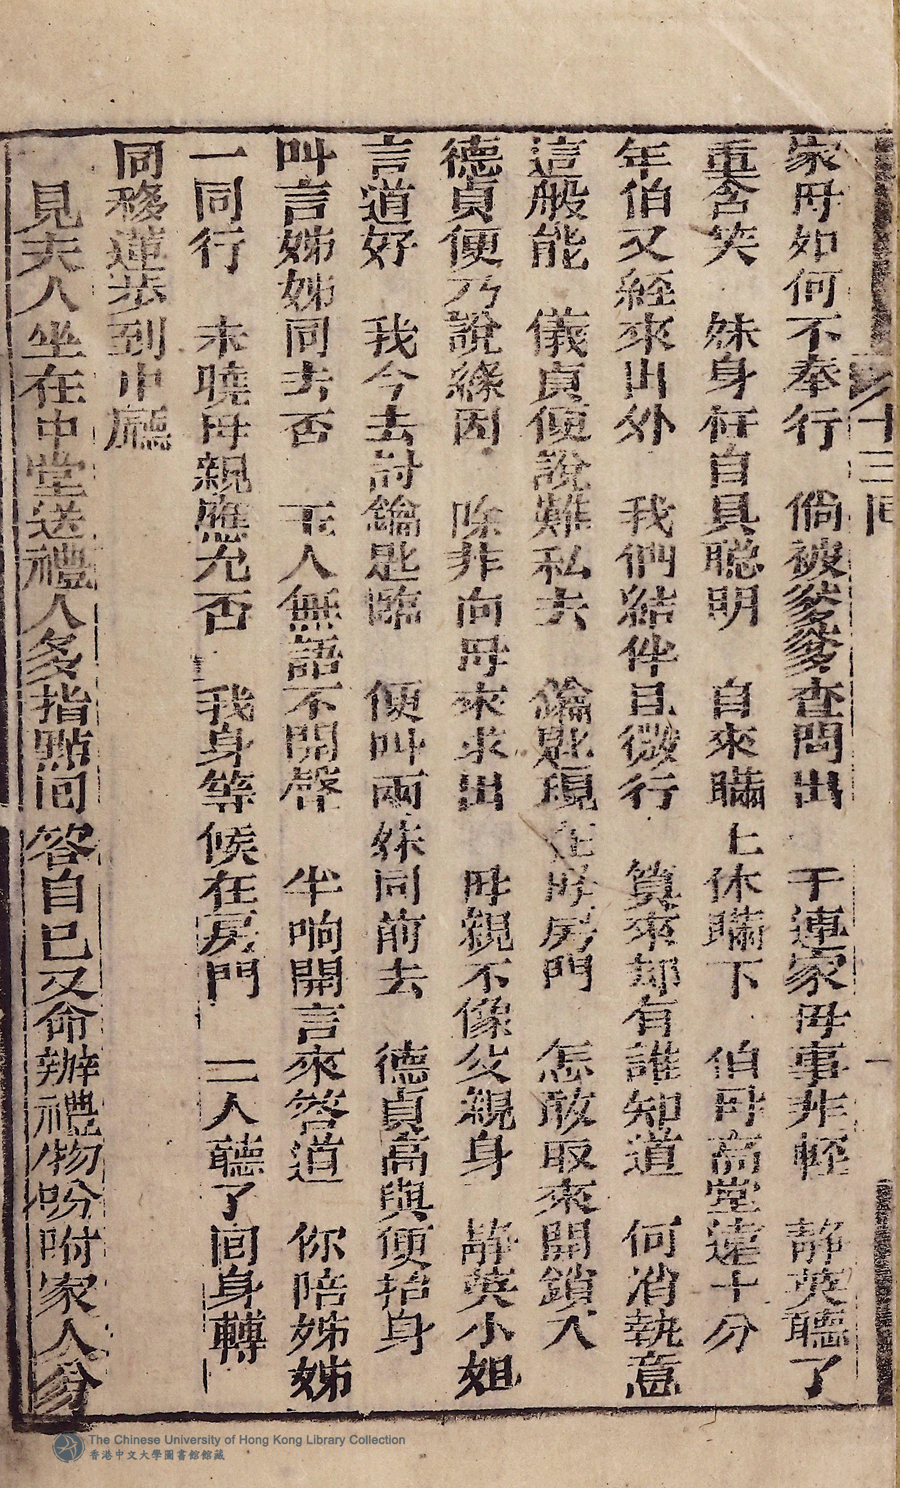 十三回
家母如何不奉行　倘被爹爹查問出　干連家母事非輕　靜英聽了
重含笑　妹身枉自具聰明　自來瞞上休瞞下　伯母高堂遠十分
年伯又經來出外　我們結伴且微行　算來却有誰知道　何消執意
這般能　儀貞便說難私去　鑰匙現在母房門　怎敢取來開鎖入
德貞便乃說緣因　除非向母來求出　母親不像父親身　靜英小姐
言道好　我今去討鑰匙臨　便叫兩妹同前去　德貞高與便抬身
叫言姊姊同去否　玉人無語不開聲　半响開言來答道　你陪姊姊
一同行　未曉母親應允否　我身等候在房門　二人聽了回身轉
同移蓮步到中廳
見夫人坐在中堂送禮人多指點回答自已又命辦禮物吩咐家人分
The Chinese University of Hong Kong Library Collection
香港中文大學圖書館館藏